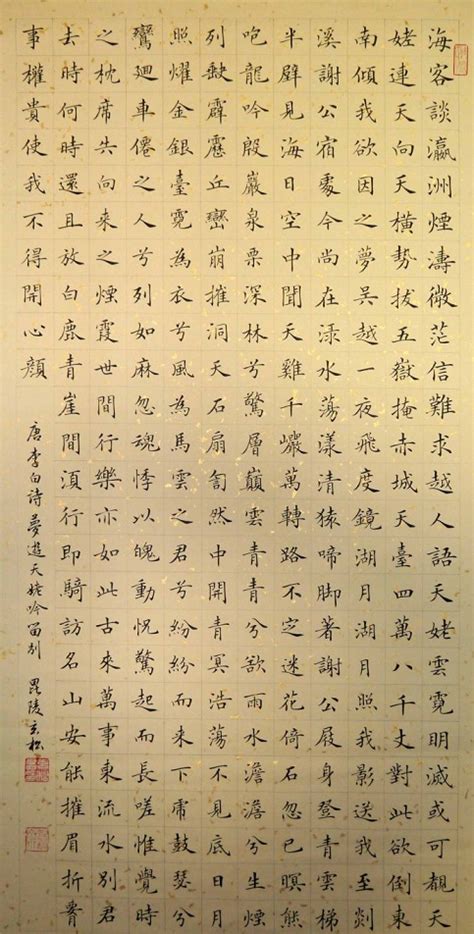 海客談瀛洲煙濤微茫信難求越人語天姥雲霓明滅或可覩天
姥連天向天橫勢拔五嶽掩赤城天臺四萬八千丈對此欲倒東
南傾我欲因之夢吳越一夜飛度鏡湖月湖月照我影送我至剡
溪謝公宿處今尚在淥水蕩漾清猿啼脚著謝公屐身登青雲梯
半壁見海日空中聞天雞千巖萬轉路不定迷花倚石忽已暝熊
咆龍吟殷巖泉栗深林兮驚層巔雲青青兮欲雨水澹澹兮生煙
列缺霹靂丘巒崩摧洞天石扇訇然中開青冥浩蕩不見底日月
照耀金銀臺霓為衣兮風為馬雲之君兮紛紛而來下虎鼓瑟兮
鸞迴車僊之人兮列如麻忽魂悸以魄動怳驚起而長嗟惟覺時
之枕席失向來之煙霞世間行樂亦如此古來萬事東流水別君
去時何時還且放白鹿青崖間須行即騎訪名山安能摧眉折腰
事權貴使我不得開心顏
唐李白詩夢遊天姥吟留別 毘陵玄松